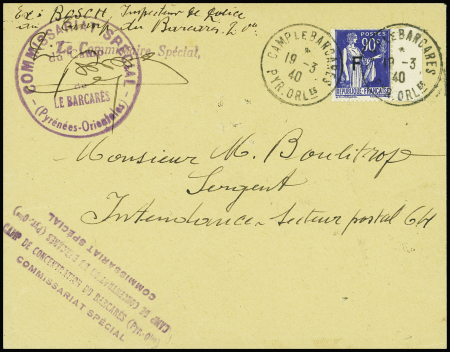 Ex: BOSCH, Inspecteur de Police
au du Barcarès. P.O.
COMMISSARIAT SPÉCIAL
du
Le Commissaire Spécial,
LE BARCARÈS
(Pyrénées-Orientales)
CAMP LE BARCARES
19-3
40
PYR. ORLES
90c
F
POSTES
REPUBLIQUE FRANCAISE
CAMP LE BARCARES
19-3
40
PYR. ORLES
Monsieur M. Boulitrop
Sergent
Intendance. Secteur postal 64
COMMISSARIAT SPÉCIAL
CAMP DE CONCENTRATION DU BARCARÈS (Pyr.-Ores)
CAMP DE CONCENTRATION DU BARCARÈS (Pyr.-Ores)
COMMISSARIAT SPÉCIAL